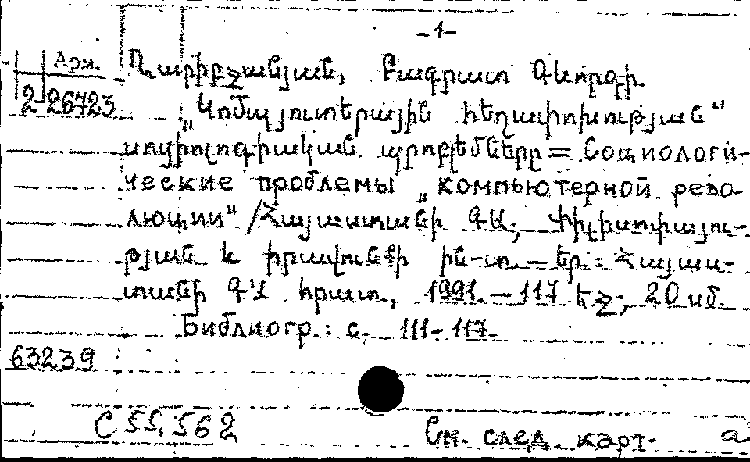 -1-
Арм. Ղարիբջանյան, Բագրատ Գևորգի.
2-26723 „Կոմպյուտերային հեղափոխության“
սոցիոլոգիական պրոբլեմները = Социологи-
ческие проблемы „компьютерной рево-
люции“ /Հայաստանի ԳԱ, Փիլիսոփայու-
թյան և իրավունքի ին-տ. – Եր.: Հայաս-
տանի ԳԱ հրատ., 1991. – 117 էջ; 20 սմ.
Библиогр.: с. 111-117.
63239
С 55.562
См. след. карт. а